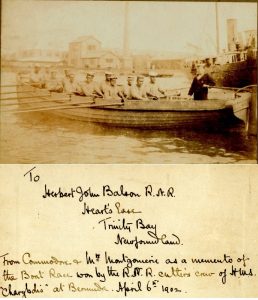 To
Herbert John Balson R.N.R.
Heart's Ease
Trinity Bay
Newfoundland.
From Commodore & Mrs Montgomerie as a memento of
the Boat Race won by the R.N.R. cutters crew of H.M.S.
"Charybdis" at Bermuda. April 6th 1902.